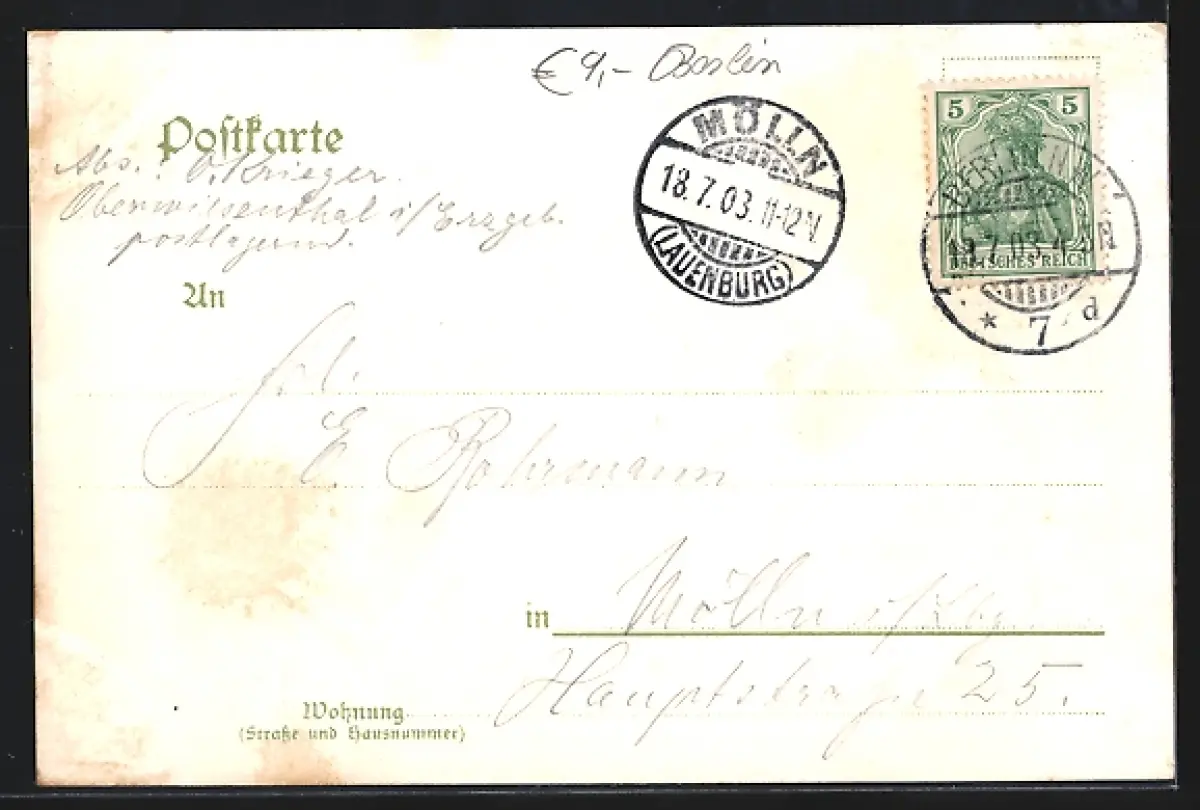 € 9,- Berlin
Postkarte
Abs.: O. Krieger.
Oberwiesenthal i/Erzgeb.
postlagernd.
MÖLLN
18.7.03. 11-12 V.
(LAUENBURG)
5 5
DEUTSCHES REICH
BERLIN
7.03. 4
* 7 d
An
Frl.
E. Rohrmann
in Mölln i/Lbg.
Hauptstraße 25.
Wohnung
(Straße und Hausnummer)